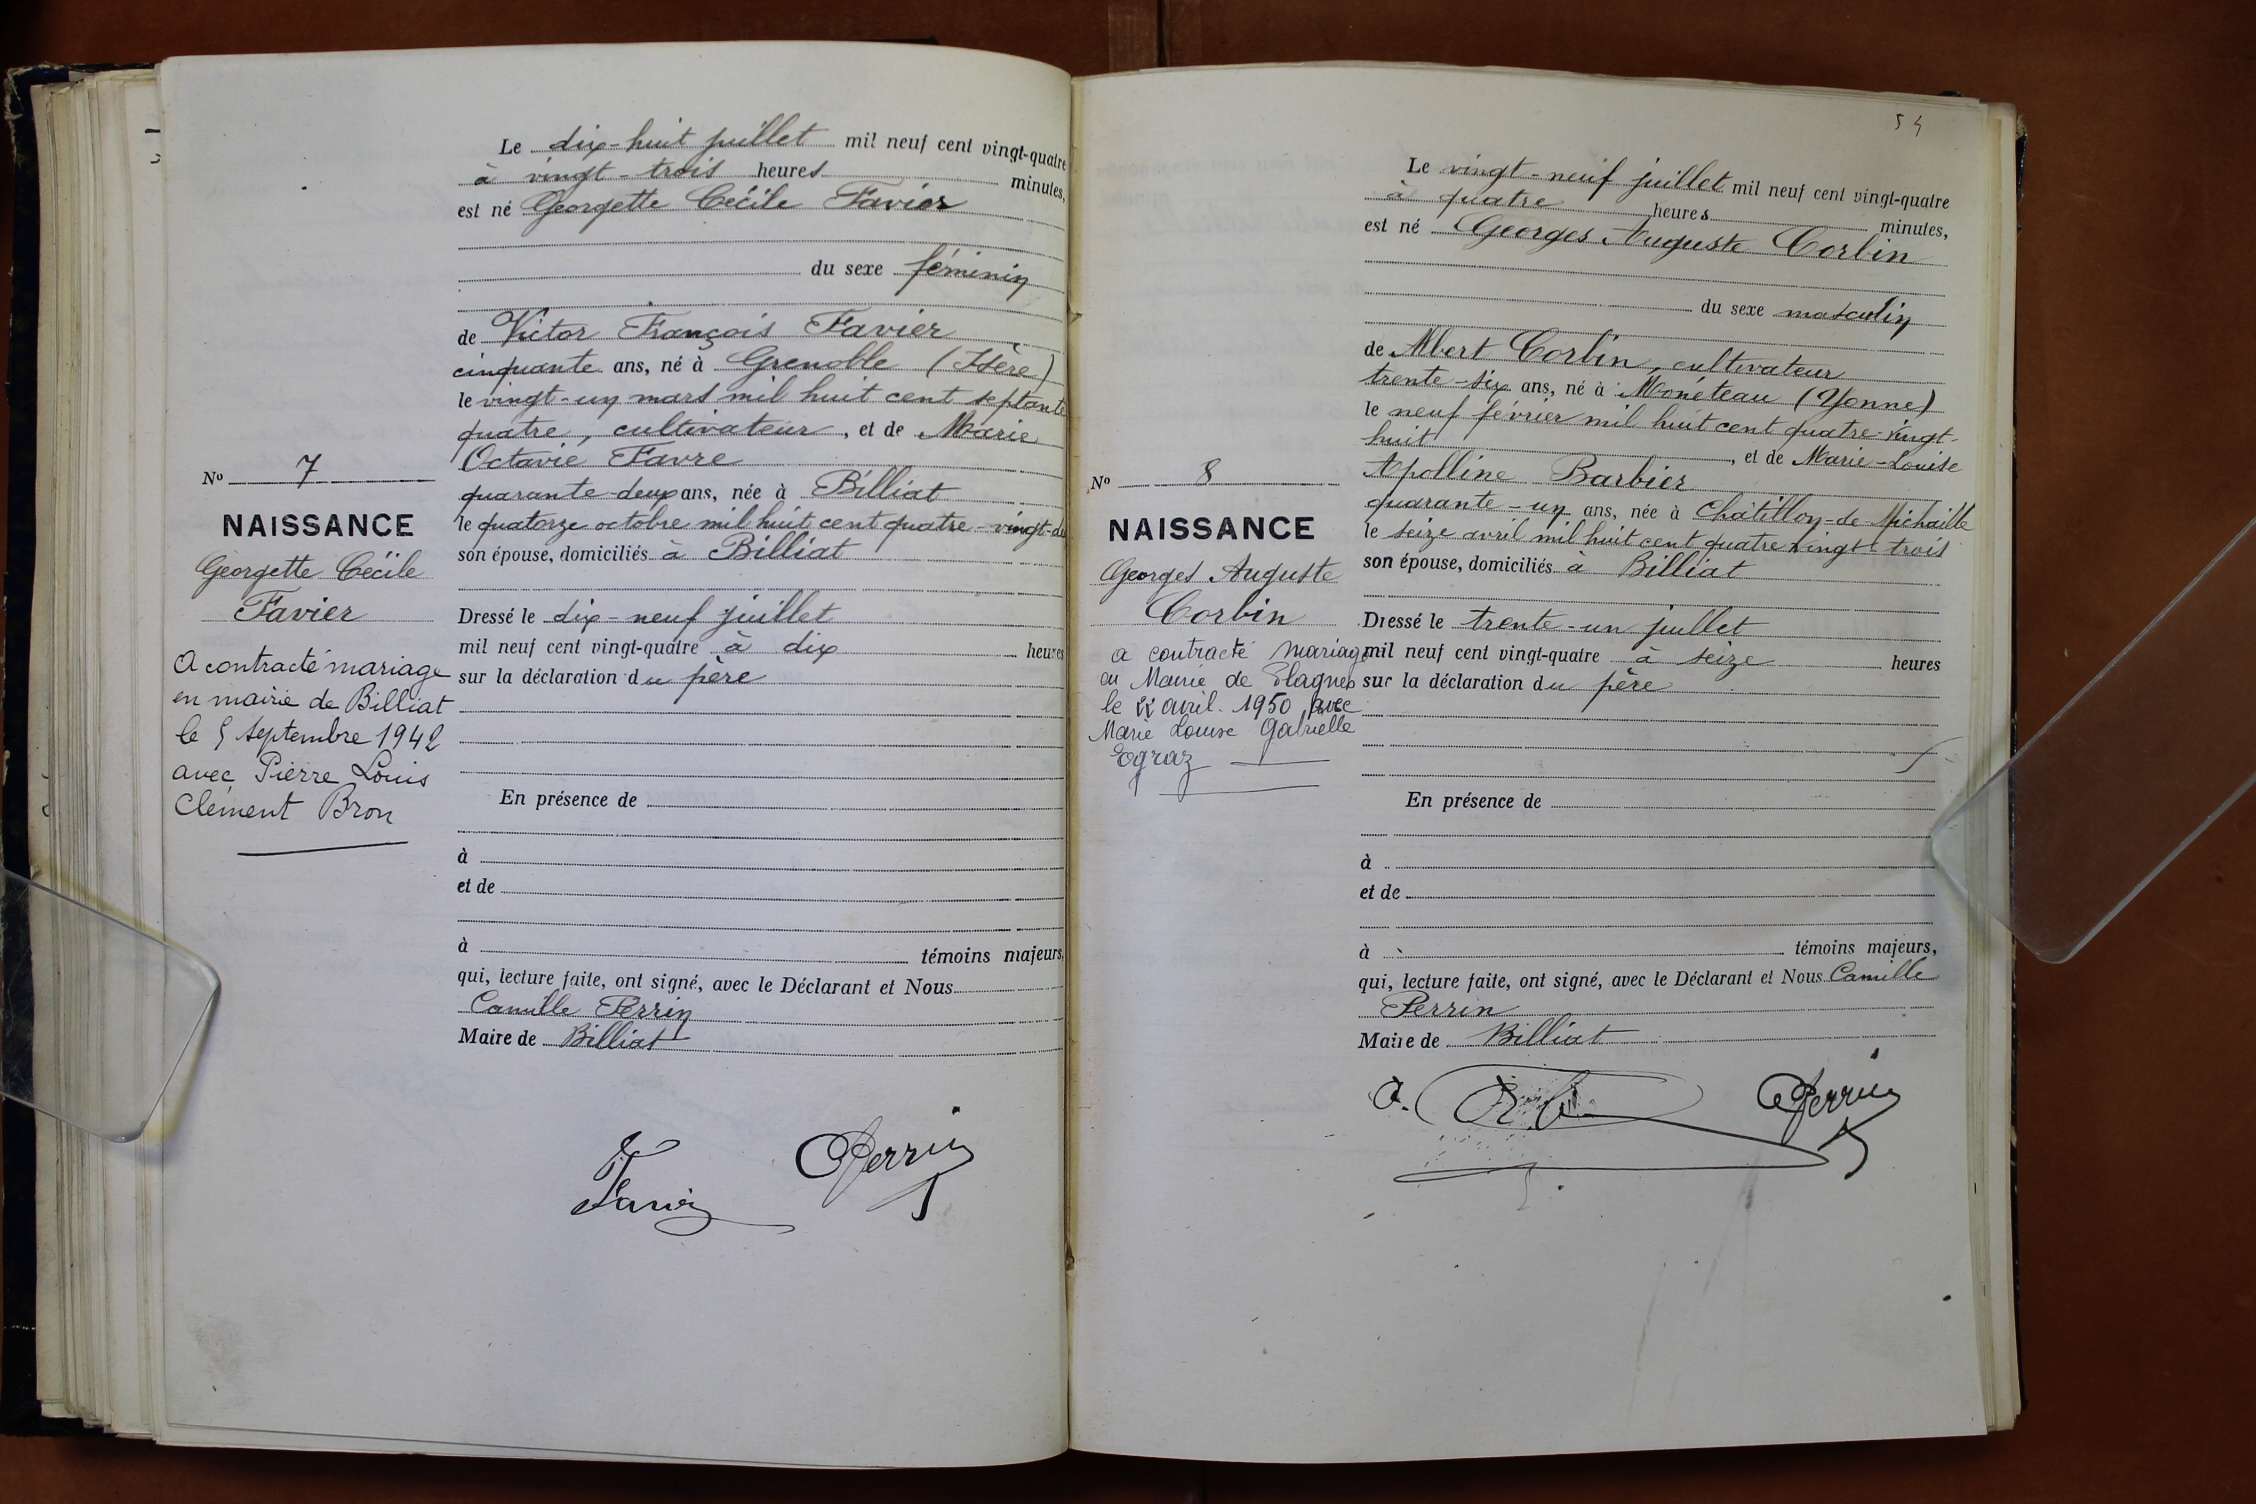 Le dix-huit juillet mil neuf cent vingt-quatre
à vingt-trois heures minutes,
est né Georgette Cécile Favier
du sexe féminin
de Victor François Favier
cinquante ans, né à Grenoble (Isère)
le vingt-un mars mil huit cent septante
quatre, cultivateur, et de Marie
Octavie Favre
quarante-deux ans, née à Billiat
le quatorze octobre mil huit cent quatre-vingt-deux
son épouse, domiciliés à Billiat
Dressé le dix-neuf juillet
mil neuf cent vingt-quatre à dix heures
sur la déclaration du père
En présence de
à
et de
à témoins majeurs,
qui, lecture faite, ont signé, avec le Déclarant et Nous
Camille Perrin
Maire de Billiat
Favier
Perrin
No 7
NAISSANCE
Georgette Cécile
Favier
A contracté mariage
en mairie de Billiat
le 5 septembre 1942
avec Pierre Louis
Clément Bron
54
Le vingt-neuf juillet mil neuf cent vingt-quatre
à quatre heures minutes,
est né Georges Auguste Corbin
du sexe masculin
de Albert Corbin, cultivateur
trente-six ans, né à Monéteau (Yonne)
le neuf février mil huit cent quatre-vingt-
huit, et de Marie-Louise
Apolline Barbier
quarante-un ans, née à Châtillon-de-Michaille
le seize avril mil huit cent quatre vingt-trois
son épouse, domiciliés à Billiat
Dressé le trente-un juillet
mil neuf cent vingt-quatre à seize heures
sur la déclaration du père
En présence de
à
et de
à témoins majeurs,
qui, lecture faite, ont signé, avec le Déclarant et Nous Camille
Perrin
Maire de Billiat
Perrin
No 8
NAISSANCE
Georges Auguste
Corbin
a contracté mariage
en Mairie de Plagnes
le avril 1950 avec
Marie Louise Gabrielle
Egraz